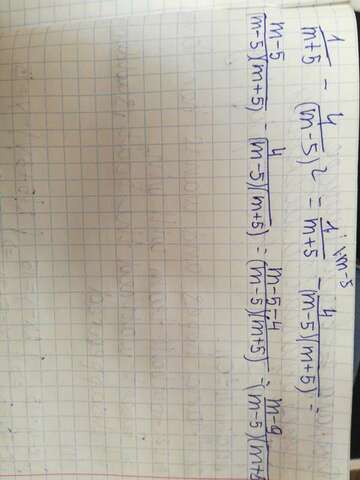 1/(m+5) - 4/(m-5)² = 1\m-5/(m+5) - 4/((m-5)(m+5)) =
(m-5)/((m-5)(m+5)) - 4/((m-5)(m+5)) = (m-5-4)/((m-5)(m+5)) = (m-9)/((m-5)(m+5